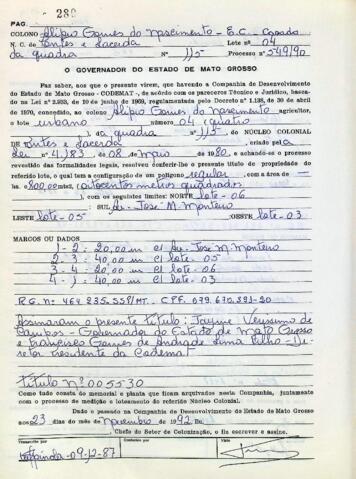 280
PAG.
COLONO Alipio Gomes do Nascimento - E.C. - Casado
N. C. de Pontes e Lacerda Lote nº 04
da quadra Nº 115 Processo nº 549/90
O GOVERNADOR DO ESTADO DE MATO GROSSO
Faz saber, aos que o presente virem, que havendo a Companhia de Desenvolvimento
do Estado de Mato Grosso - CODEMAT -, de acordo com os pareceres Técnico e Jurídico, basca-
na Lei nº 2.933, de 10 de junho de 1969, regulamentada pelo Decreto nº 1.138, de 30 de abril
de 1970, concedido, ao colono Alipio Gomes do Nascimento agricultor,
o lote urbano número 04 (quatro
), da quadra nº 115 - do NÚCLEO COLONIAL
DE Pontes e Lacerda, criado pela
Lei nº 4.183 de 08 de Maio de 1980, e achando-se o processo
revestido das formalidades legais, resolveu conferir-lhe o presente título de propriedade do
referido lote, o qual tem a configuração de um polígono regular, com a área de
800,00 mts2, (oitocentos metros quadrados
), com os seguintes limites: NORTE lote - 06
SUL Av - José M. Monteiro
LESTE lote - 05 OESTE lote - 03
MARCOS OU DADOS
1 - 2 = 20,00 m c/ Av - José M. Monteiro
2 - 3 = 40,00 m c/ lote - 05
3 - 4 = 20,00 m c/ lote - 06
4 - 1 = 40,00 m c/ lote - 03
R.G. nº 464 835-SSP/MT - CPF. 079.670.591-20
Assinaram o presente título: Jayme Verissimo de
Campos - Governador do Estado de Mato Grosso
e Francisco Gomes de Andrade Lima Filho - Di-
retor Presidente da Codemat
Título nº 005530
Como tudo consta do memorial e planta que ficam arquivados nesta Companhia, juntamente
com o processo de medição e loteamento do referido Núcleo Colonial.
Dado e passado na Companhia de Desenvolvimento do Estado de Mato Grosso
aos 23 dias do mês de novembro de 1992 Eu,
, Chefe do Setor de Colonização, o fiz escrever e assino.
Transcrito por Conferido por Visto
09-12-87